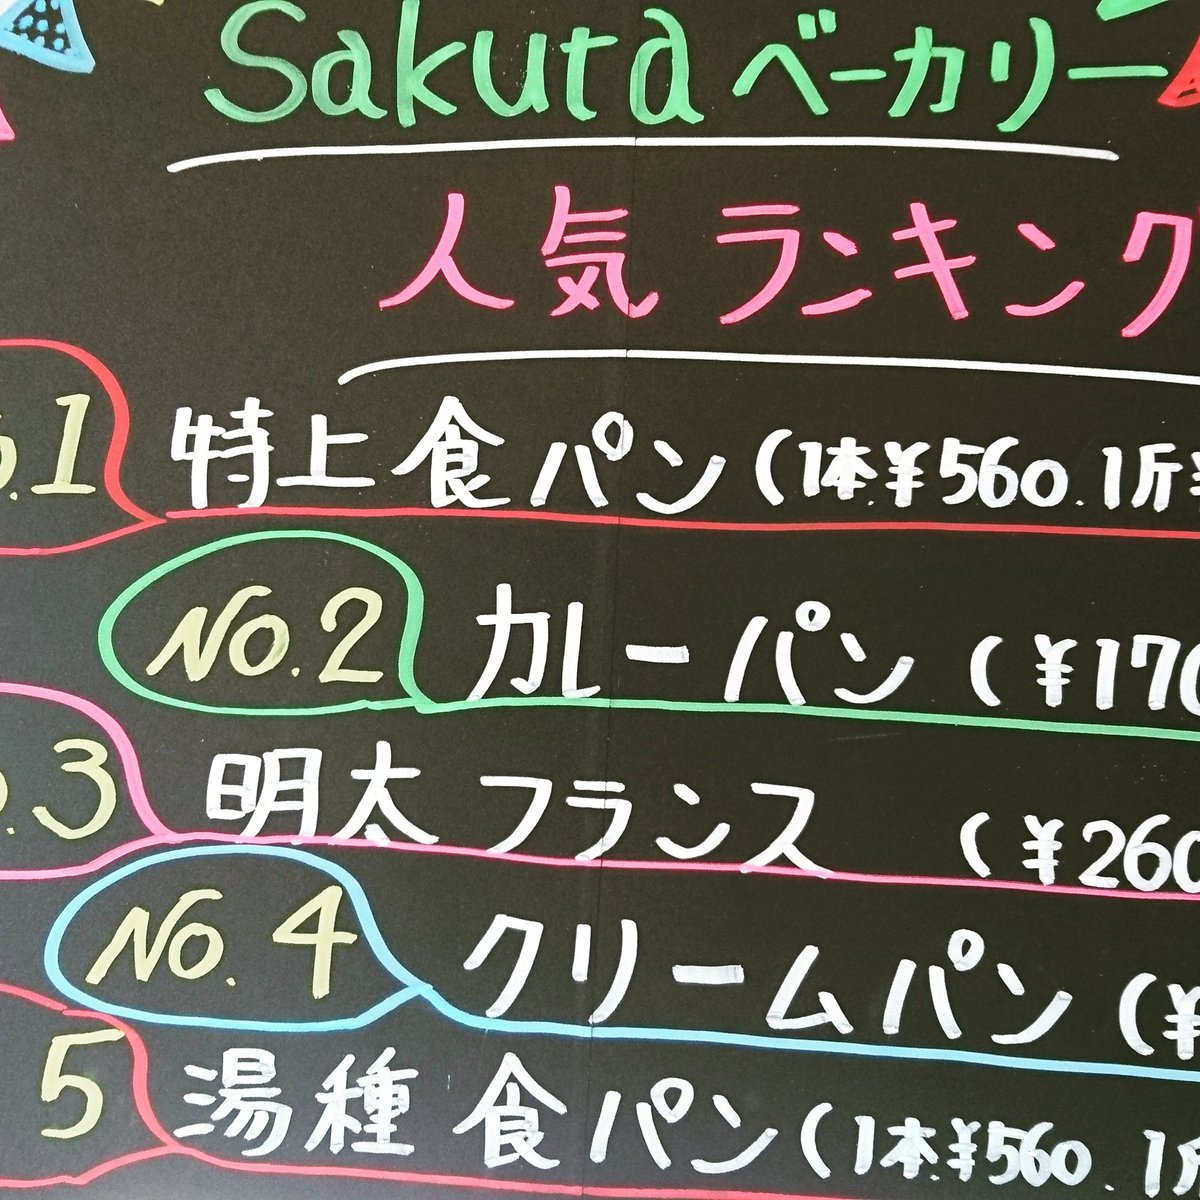 Sakura ベーカリー
人気ランキング
.1 特上食パン(1本¥560.1斤¥
No.2 カレーパン (¥170
.3 明太フランス (¥260
No.4 クリームパン (¥
5 湯種食パン(1本¥560.1斤